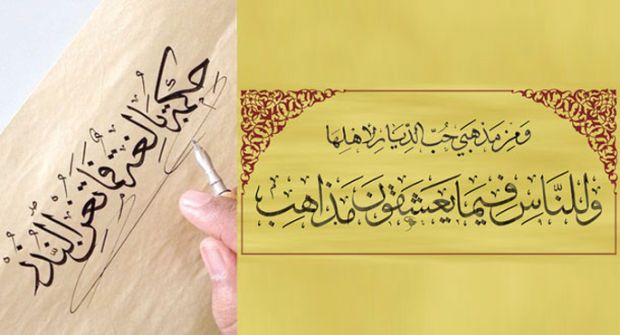 حكمة بالغة فما تغن النذر
ومن مذهبي حب الديار لأهلها
وللناس فيما يعشقون مذاهب